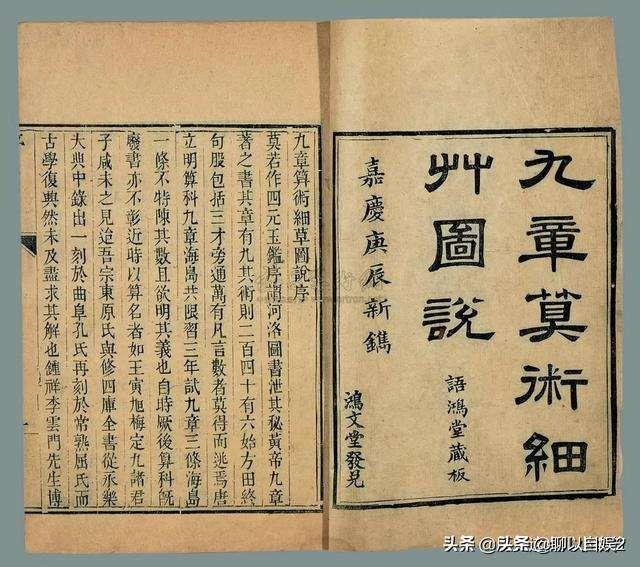 九章算術細
艸圖說
嘉慶庚辰新鐫
語鴻堂藏板
鴻文堂發兌
九章算術細草圖說序
莫若作四元玉鑑序謂河洛圖書泄其秘黃帝九章
著之書其章有九其術則二百四十有六始方田終
句股包括三才旁通萬有凡言數者莫得而逃焉唐
立明算科九章海島共限習三年試九章三條海島
一條不特陳其數且欲明其義也自時厥後算科既
廢書亦不彰近時以算名者如王寅旭梅定九諸君
子咸未之見迨吾宗東原氏與修四庫全書從永樂
大典中錄出一刻於曲阜孔氏再刻於常熟屈氏而
古學復興然未及盡求其解也鍾祥李雲門先生博
头条 @头条@聊以自娱2